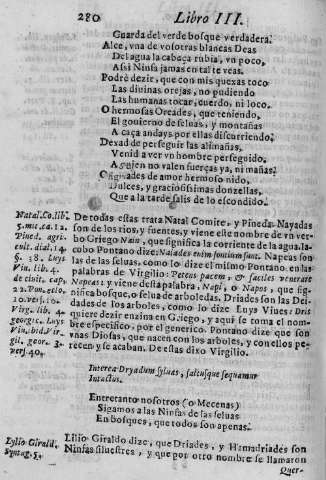 280 Libro III.
Guarda del verde bosque verdadera.
Alce, vna de vosotras blancas Deas
Del agua la cabeça rubia, vn poco,
Assi Ninfa jamas en tal te veas.
Podrè dezir, que con mis quexas toco
Las diuinas orejas, no pudiendo
Las humanas tocar, cuerdo, ni loco.
O hermosas Oreades, que teniendo,
El gouierno de seluas, y montañas
A caça andays por ellas discurriendo,
Dexad de perseguir las alimañas,
Venid a ver vn hombre perseguido,
A quien no valen fuerças ya, ni mañas.
O Driades de amor hermoso nido,
Dulces, y graciosissimas donzellas,
Que a la tarde salis de lo escondido.
De todas estas trata Natal Comite, y Pineda. Nayadas
son de los rios, y fuentes, y viene este nombre de vn verbo
Griego Naio, que significa la corriente de la agua.
Pontano dize: Naiades enim fontium sunt. Napeas son
las de las seluas, como lo dize el mismo Pontano, en las
palabras de Virgilio: Petens pacem, & faciles venerate
Napeas: y viene desta palabra, Napi, o Napos, que significa
bosque, o selua de arboledas. Driades son las Deidades
de los arboles, como lo dize Luys Viues: Dris
quiere dezir enzina en Griego, y aqui se toma el nombre
especifico, por el generico. Pontano dize que son
vnas Diosas, que nacen con los arboles, y con ellos perecen
y se acaban. De estas dixo Virgilio.
Interea Dryadum syluas, saltusque sequamur
Intactus.
Entretanto nosotros (o Mecenas)
Sigamos a las Ninfas de las seluas
En bosques, que todos son apenas.
Lilio Giraldo dize, que Driades, y Hamadriades son
Ninfas siluestres, y que por otro nombre se llamaron
Quer-
Natal. Co. lib.
5. mit. ca. 12.
Pined. agri.
cult. dial. 14
§. 38. Luys
Vin. lib. 4.
de ciuit. cap.
Virg. lib. 4
georgic. Luys
Vin. ibid. Vir
gil. geor. 3.
vers. 40.
Lylio Girald.
Syntag. 5.